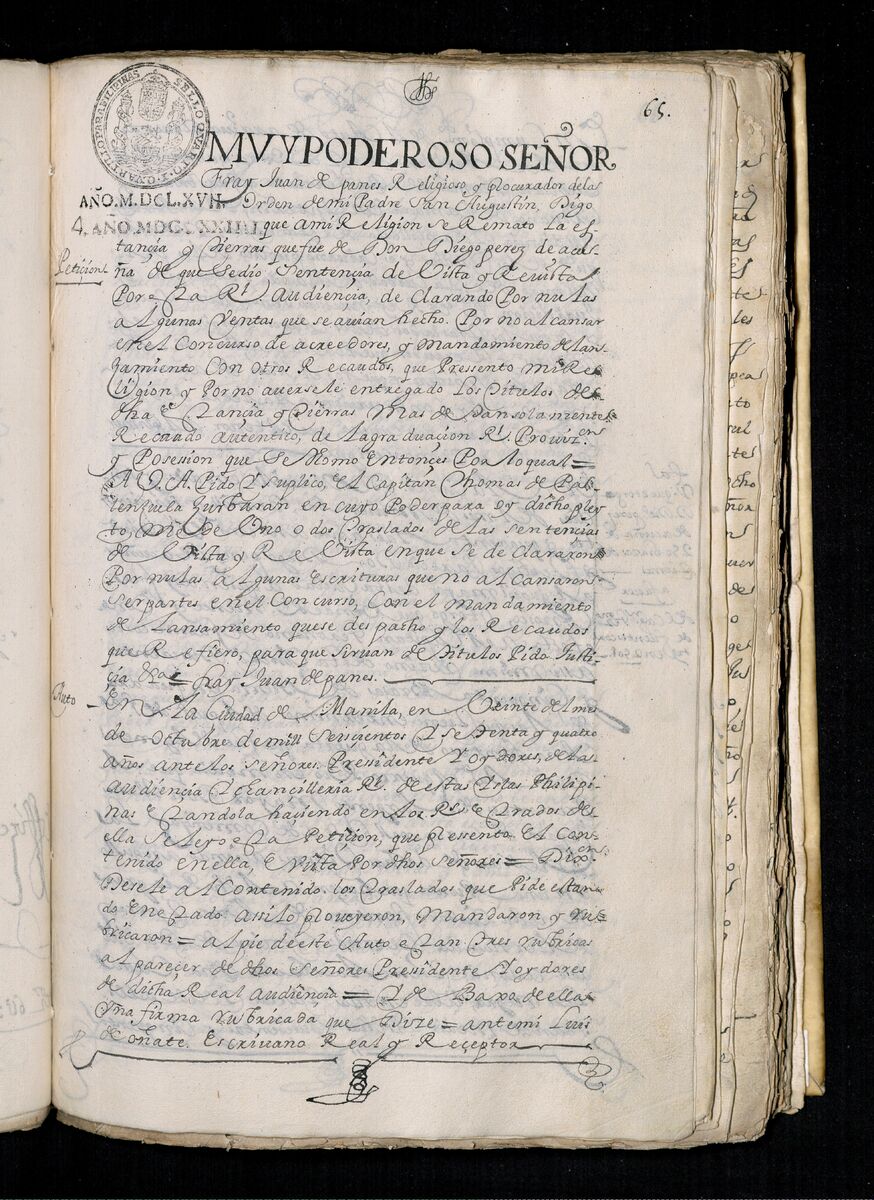 65.
SELLO QVARTO VN QVARTILLO PARA FILIPINAS
MVY PODEROSO SEÑOR
Fray Juan de panes Religioso, y procurador de las
AÑO.M.DCLXVII.
Orden de mi Padre San Augustin, Digo
4. AÑO.MDCLXXIIII
que ami Religion se Remato La es
Petiçion
tançia y Tierras que fue de Don Diego perez de acu-
ña de que sedio Sentençia de Vista y Revista
Por esta Rl. Audiençia, de clarando Por nulas
algunas Ventas que se auian hecho. Por no alcansar
en el Concurso de acreedores, y mandamiento de lan-
zamiento Con otros Recaudos, que Pressento mi Re
ligion y Por no averse le entregado Los Titulos de
dha Estançia y Tierras mas de tan solamente
Recaudo autentico, de la graduaçion Rl. Provizon
y Possesion que se thomo entonçes Por lo qual=
A V. A. Pido Y suplico, el Capitan Thomas de Pa
lenzuela Zurbaran en cuyo Poder para oy dicho pley
to, me de Uno o dos traslados de las sentençias
de Vista y Re Vista en que se de clararon
Por nulas algunas escrituras que no alcansaron
ser partes en el Concurso, Con el mandamiento
de lansamiento que se des pacho y los Recaudos
que Refiero, para que siruan de titulos Pido Justi
çia = fray Juan de panes.
Auto
En La Ciudad de Manila, en Veinte del mes
de octubre de mill seisçientos Y setenta y quatro
años ante los señores, Presidente Y oydores, de la
audiençia Y chancilleria Rl. de estas Yslas Philipi
nas estandola haçiendo en los Rs. estrados de
ella se leyo esta Petiçion, que pressento el Con-
tenido en ella, e vista por dhos señores = Dixeron
Desele al Contenido. los traslados que Pide estan
do en estado. assi lo proueyeron, mandaron y ru
bricaron = al pie de este Auto estan tres rubricas
al pareçer de dhos señores Presidente Y oydores
de dicha Real audiençia = Y de Baxo de ella
Vna firma rubricada que Dize = ante mi Luis
de oñate. Escriuano Real y Reçeptor